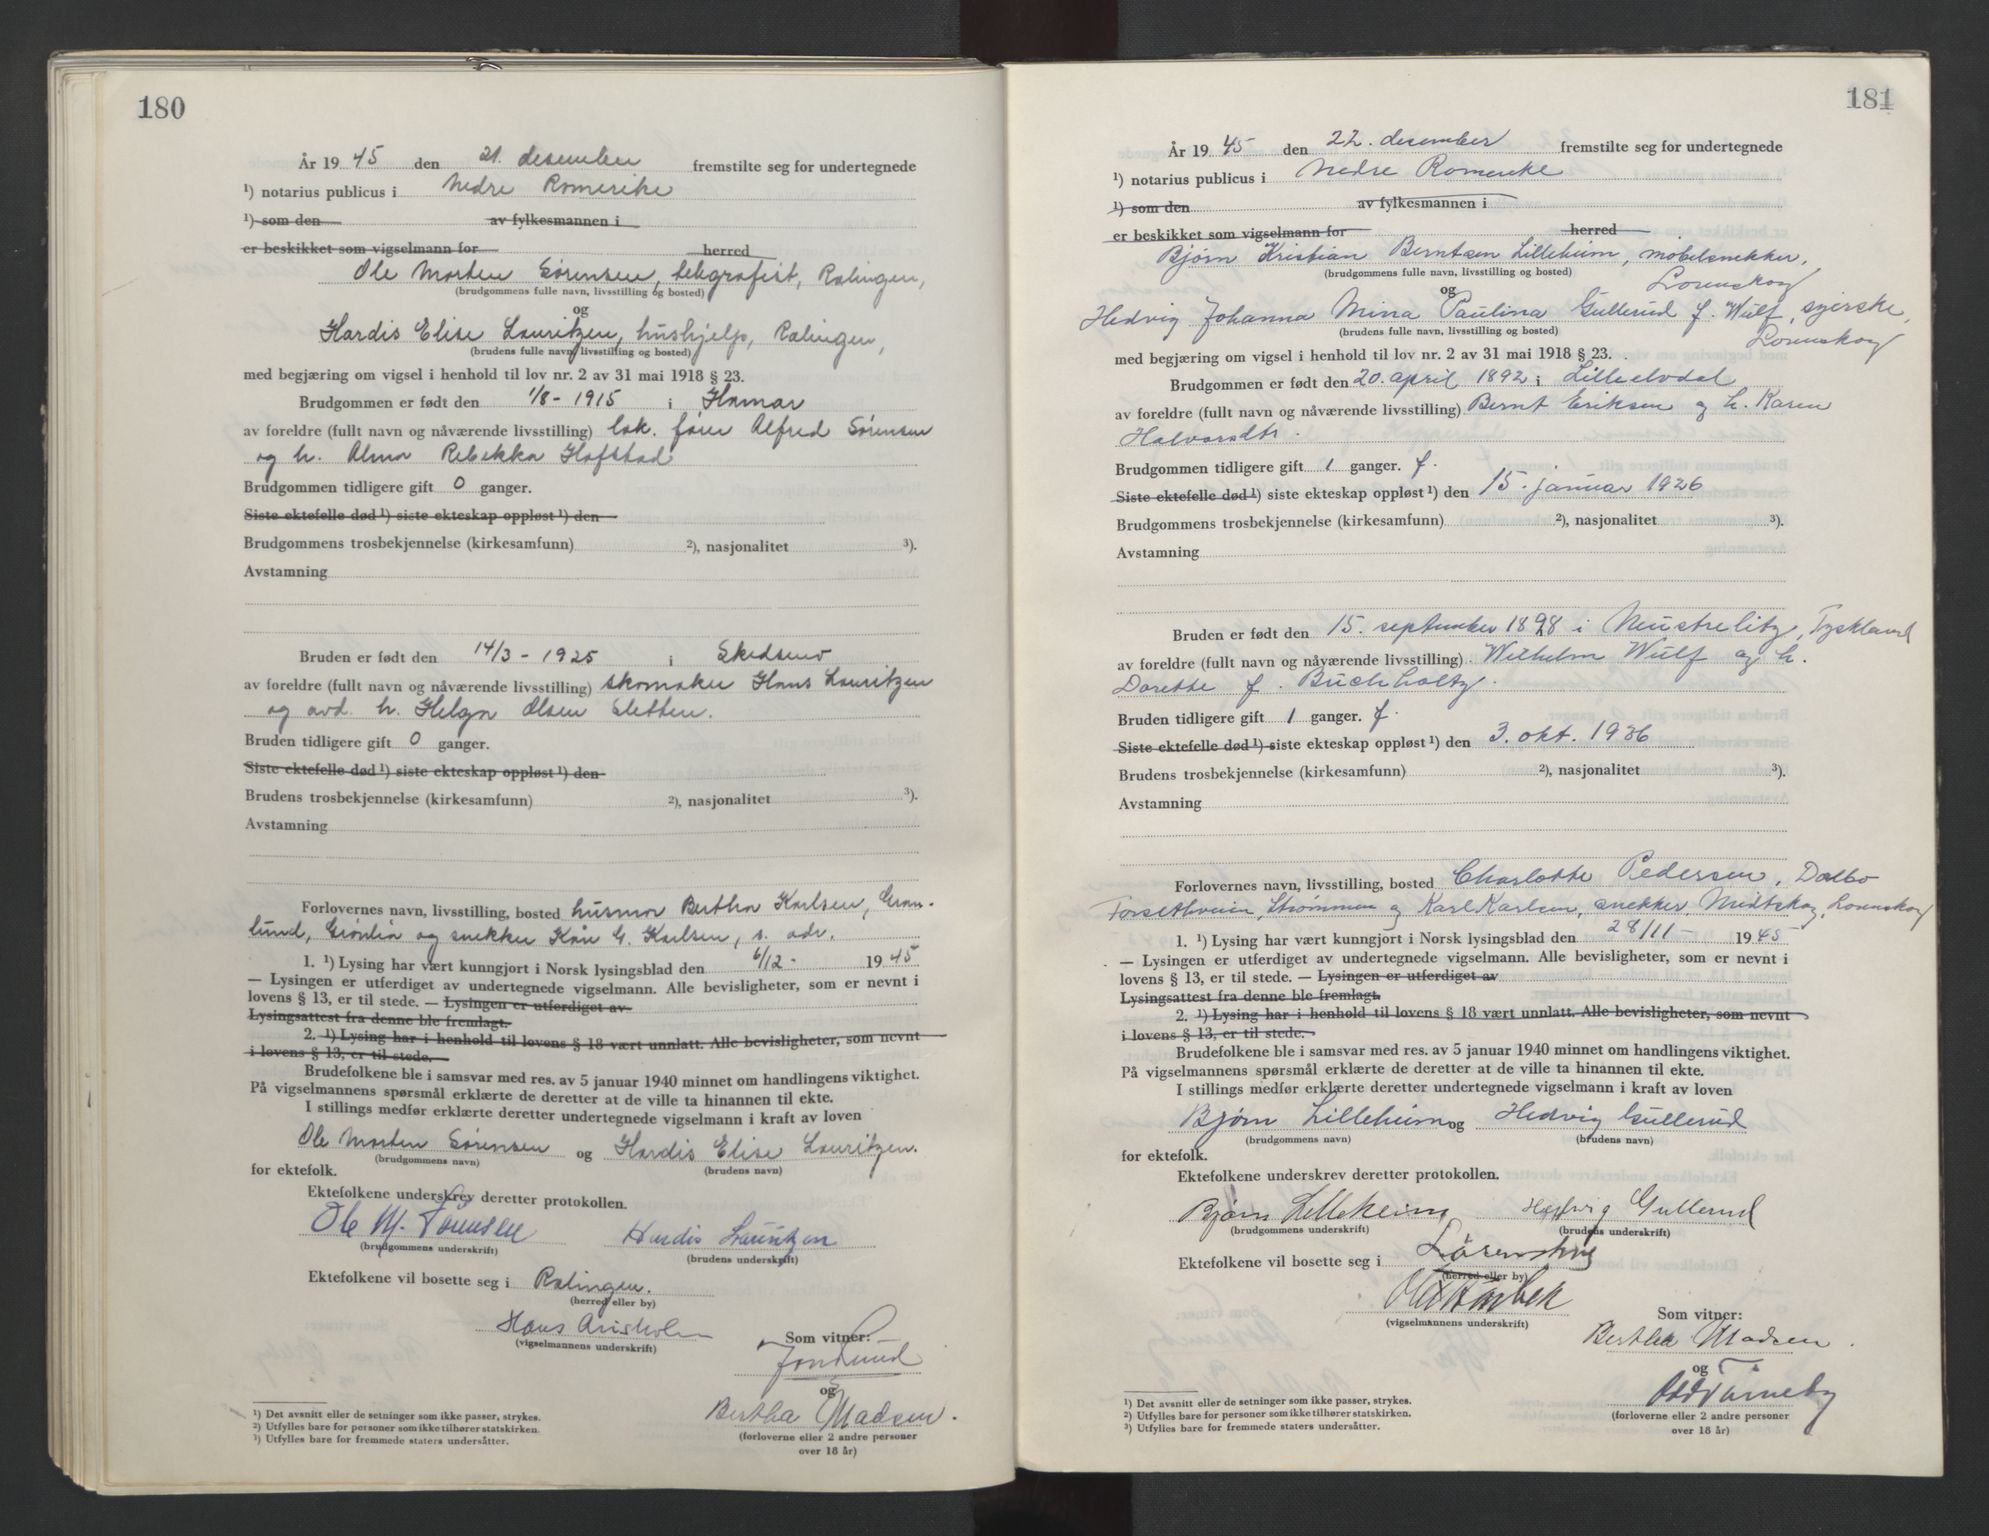 180
År 1945 den 21. desember fremstilte seg for undertegnede
¹) notarius publicus i Nedre Romerike
¹) som den av fylkesmannen i
er beskikket som vigselmann for herred
Ole Morten Sørensen, telegrafist, Rælingen,
(brudgommens fulle navn, livsstilling og bosted)
og
Hardis Elise Lauritzen, hushjelp, Rælingen,
(brudens fulle navn, livsstilling og bosted)
med begjæring om vigsel i henhold til lov nr. 2 av 31 mai 1918 § 23.
Brudgommen er født den 1/8 - 1915 i Hamar
av foreldre (fullt navn og nåværende livsstilling) lok. fører Alfred Sørensen
og h. Alma Rebekka Hafstad
Brudgommen tidligere gift 0 ganger.
Siste ektefelle død ¹) siste ekteskap oppløst ¹) den
Brudgommens trosbekjennelse (kirkesamfunn) ²), nasjonalitet ³).
Avstamning
Bruden er født den 14/3 - 1925 i Skedsmo
av foreldre (fullt navn og nåværende livsstilling) skomaker Hans Lauritzen
og avd. h. Helga Olsen Sletten.
Bruden tidligere gift 0 ganger.
Siste ektefelle død ¹) siste ekteskap oppløst ¹) den
Brudens trosbekjennelse (kirkesamfunn) ²), nasjonalitet ³).
Avstamning
Forlovernes navn, livsstilling, bosted husmor Bertha Karlsen, Gran-
lund, Grønlia og snekker Kåre G. Karlsen, s. adr.
1. ¹) Lysing har vært kunngjort i Norsk lysingsblad den 6/12 - 1945
— Lysingen er utferdiget av undertegnede vigselmann. Alle bevisligheter, som er nevnt i
lovens § 13, er til stede. — Lysingen er utferdiget av
Lysingsattest fra denne ble fremlagt.
2. ¹) Lysing har i henhold til lovens § 18 vært unnlatt. Alle bevisligheter, som nevnt
i lovens § 13, er til stede.
Brudefolkene ble i samsvar med res. av 5 januar 1940 minnet om handlingens viktighet.
På vigselmannens spørsmål erklærte de deretter at de ville ta hinannen til ekte.
I stillings medfør erklærte deretter undertegnede vigselmann i kraft av loven
Ole Morten Sørensen og Hardis Elise Lauritzen.
(brudgommens navn) (brudens navn)
for ektefolk.
Ektefolkene underskrev deretter protokollen.
Ole M. Sørensen Hardis Lauritzen
(brudgommens underskrift) (brudens underskrift)
Ektefolkene vil bosette seg i Rælingen.
(herred eller by)
Hans
(vigselmannens underskrift)
Som vitner:
Jon Lund
og
Bertha Madsen.
(forloverne eller 2 andre personer
over 18 år)
¹) Det avsnitt eller de setninger som ikke passer, strykes.
²) Utfylles bare for personer som ikke tilhører statskirken.
³) Utfylles bare for fremmede staters undersåtter.
181
År 1945 den 22. desember fremstilte seg for undertegnede
¹) notarius publicus i Nedre Romerike
¹) som den av fylkesmannen i
er beskikket som vigselmann for herred
Bjørn Kristian Berntsen Lilleheim, møbelsnekker,
(brudgommens fulle navn, livsstilling og bosted) Lørenskog
og
Hedvig Johanna Minna Paulina Gullerud f. Wulf, syerske,
(brudens fulle navn, livsstilling og bosted) Lørenskog
med begjæring om vigsel i henhold til lov nr. 2 av 31 mai 1918 § 23.
Brudgommen er født den 20. april 1892 i Lilleelvdal
av foreldre (fullt navn og nåværende livsstilling) Bernt Eriksen og h. Karen
Halvorsdtr.
Brudgommen tidligere gift 1 ganger. f.
Siste ektefelle død ¹) siste ekteskap oppløst ¹) den 15. januar 1926
Brudgommens trosbekjennelse (kirkesamfunn) ²), nasjonalitet ³).
Avstamning
Bruden er født den 15. september 1898 i Neustrelitz, Tyskland
av foreldre (fullt navn og nåværende livsstilling) Wilhelm Wulf og h.
Dorette f. Buchholtz.
Bruden tidligere gift 1 ganger. f.
Siste ektefelle død ¹) siste ekteskap oppløst ¹) den 3. okt. 1936
Brudens trosbekjennelse (kirkesamfunn) ²), nasjonalitet ³).
Avstamning
Forlovernes navn, livsstilling, bosted Charlotte Pedersen, Dalbo
Torsethveien, Strømmen og Karl Karlsen, snekker, Lørenskog
1. ¹) Lysing har vært kunngjort i Norsk lysingsblad den 28/11 - 1945
— Lysingen er utferdiget av undertegnede vigselmann. Alle bevisligheter, som er nevnt i
lovens § 13, er til stede. — Lysingen er utferdiget av
Lysingsattest fra denne ble fremlagt.
2. ¹) Lysing har i henhold til lovens § 18 vært unnlatt. Alle bevisligheter, som nevnt
i lovens § 13, er til stede.
Brudefolkene ble i samsvar med res. av 5 januar 1940 minnet om handlingens viktighet.
På vigselmannens spørsmål erklærte de deretter at de ville ta hinannen til ekte.
I stillings medfør erklærte deretter undertegnede vigselmann i kraft av loven
Bjørn Lilleheim og Hedvig Gullerud
(brudgommens navn) (brudens navn)
for ektefolk.
Ektefolkene underskrev deretter protokollen.
Bjørn Lilleheim Hedvig Gullerud
(brudgommens underskrift) (brudens underskrift)
Ektefolkene vil bosette seg i Lørenskog
(herred eller by)
(vigselmannens underskrift)
Som vitner:
Bertha Madsen.
og
(forloverne eller 2 andre personer
over 18 år)
¹) Det avsnitt eller de setninger som ikke passer, strykes.
²) Utfylles bare for personer som ikke tilhører statskirken.
³) Utfylles bare for fremmede staters undersåtter.